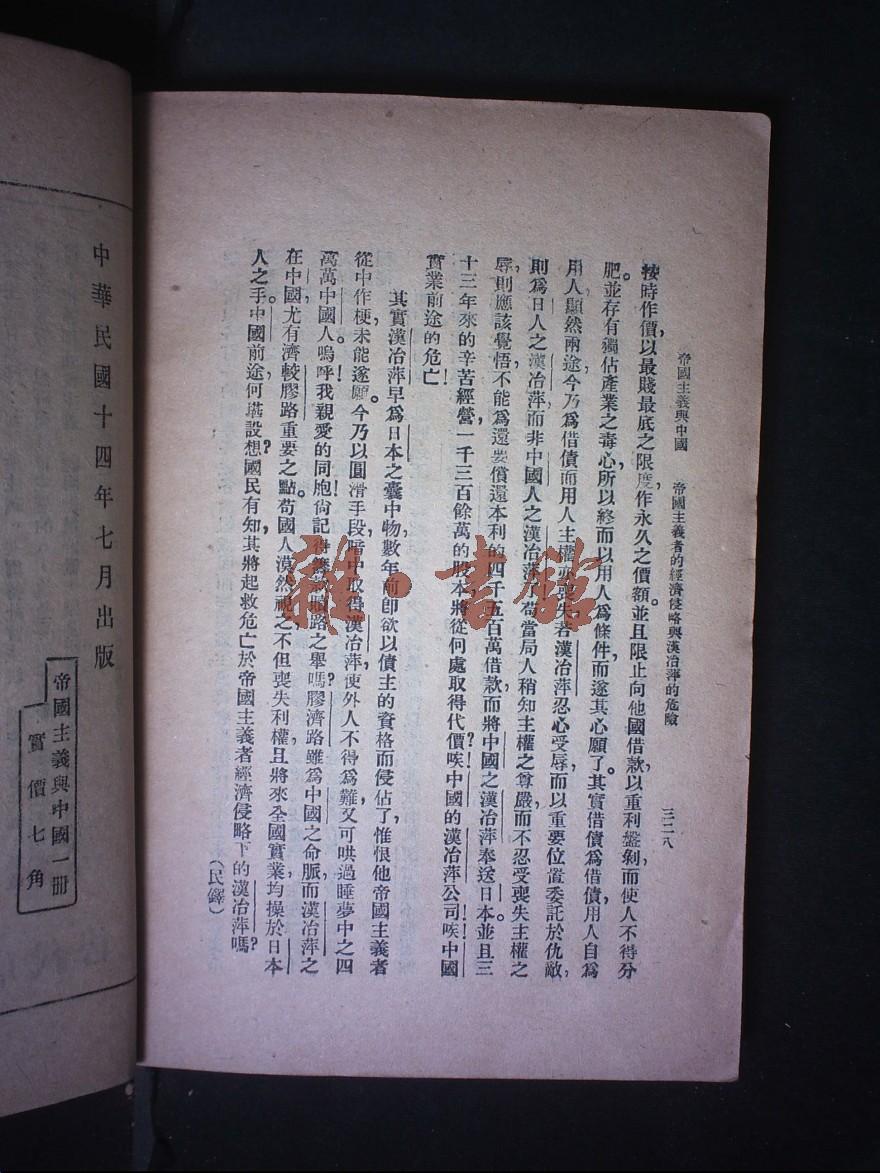 帝國主義與中國　帝國主義者的經濟侵略與漢冶萍的危險　三二八
按時作價，以最賤最底之限度，作永久之價額。並且限止向他國借款，以重利盤剝，而使人不得分
肥。並存有獨佔產業之毒心，所以終而以用人爲條件而遂其心願了。其實借債爲借債，用人自爲
用人，顯然兩途，今乃爲借債而用人，主權亦喪失，若漢冶萍忍心受辱，而以重要位置委託於仇敵，
則爲日人之漢冶萍，而非中國人之漢冶萍了。苟當局人稍知主權之尊嚴，而不忍受喪失主權之
辱，則應該覺悟不能爲還要償還本利的四千五百萬借款，而將中國之漢冶萍奉送日本。並且三
十三年來的辛苦經營，一千三百餘萬的股本，將從何處取得代價？唉！中國的漢冶萍公司！唉！中國
實業前途的危亡！
其實漢冶萍早爲日本之囊中物，數年前卽欲以債主的資格而侵佔了，惟恨他帝國主義者
從中作梗，未能遂願。今乃以圓滑手段，暗中取得漢冶萍，使外人不得爲難，又可哄過睡夢中之四
萬萬中國人。嗚呼！我親愛的同胞！尙記得籌款贖路之舉嗎？膠濟路雖爲中國之命脈，而漢冶萍之
在中國，尤有濟較膠路重要之點。苟國人漠然視之，不但喪失利權，且將來全國實業，均操於日本
人之手，中國前途，何堪設想？國民有知，其將起救危亡於帝國主義者經濟侵略下的漢冶萍嗎？
（民鐸）
中華民國十四年七月出版
帝國主義與中國一册
實價七角
雜·書館